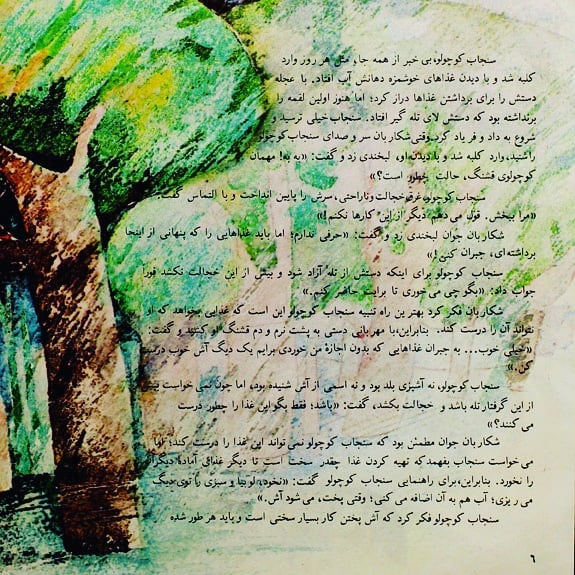 سنجاب کوچولو، بی خبر از همه جا، مثل هر روز وارد
کلبه شد و با دیدن غذاهای خوشمزه دهانش آب افتاد. با عجله
دستش را برای برداشتن غذاها دراز کرد؛ اما هنوز اولین لقمه را
برنداشته بود که دستش لای تله گیر افتاد. سنجاب خیلی ترسید و
شروع به داد و فریاد کرد. وقتی شکاربان سر و صدای سنجاب کوچولو
راشنید، وارد کلبه شد و با دیدن او، لبخندی زد و گفت: «به به! مهمان
کوچولوی قشنگ، حالت چطور است؟»
سنجاب کوچولو، غرق خجالت و ناراحتی، سرش را پایین انداخت و با التماس گفت:
«مرا ببخش. قول می‌دهم دیگر از این کارها نکنم!»
شکاربان جوان لبخندی زد و گفت: «حرفی ندارم؛ اما باید غذاهایی را که پنهانی از اینجا
برداشته‌ای، جبران کنی!»
سنجاب کوچولو برای اینکه دستش از تله آزاد شود و بیش از این خجالت نکشد فوراً
جواب داد: «بگو چی می‌خوری تا برایت حاضر کنم.»
شکاربان فکر کرد بهترین راه تنبیه سنجاب کوچولو این است که غذایی بخواهد که او
نتواند آن را درست کند. بنابراین، با مهربانی دستی به پشت نرم و دم قشنگ او کشید و گفت:
«خیلی خوب... به جبران غذاهایی که بدون اجازهٔ من خوردی برایم یک دیگ آش خوب درست
کن.»
سنجاب کوچولو، نه آشپزی بلد بود و نه اسمی از آش شنیده بود، اما چون نمی خواست بیش
از این گرفتار تله باشد و خجالت بکشد، گفت: «باشد؛ فقط بگو این غذا را چطور درست
می کنند؟»
شکاربان جوان مطمئن بود که سنجاب کوچولو نمی تواند این غذا را درست کند؛ اما
می خواست سنجاب بفهمد که تهیه کردن غذا چقدر سخت است تا دیگر غذای آمادهٔ دیگران
را نخورد. بنابراین، برای راهنمایی سنجاب کوچولو گفت: «نخود، لوبیا و سبزی را توی دیگ
می ریزی؛ آب هم به آن اضافه می کنی؛ وقتی پخت، می شود آش.»
سنجاب کوچولو فکر کرد که آش پختن کار بسیار سختی است و باید هر طور شده
۶